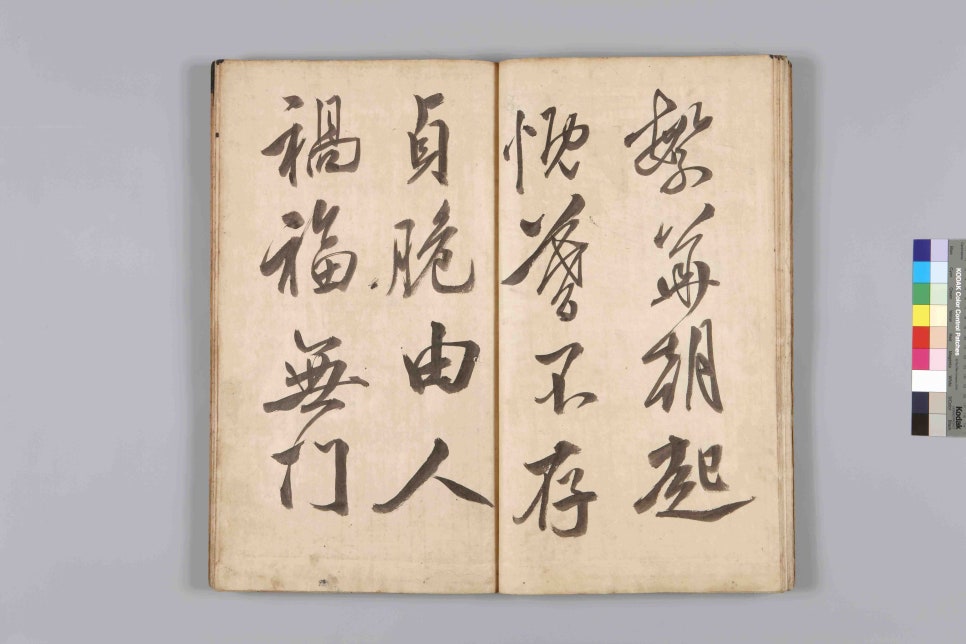 繁華朝起
慨暮不存
貞脆由人
禍福無門
KODAK Color Control Patches
Kodak